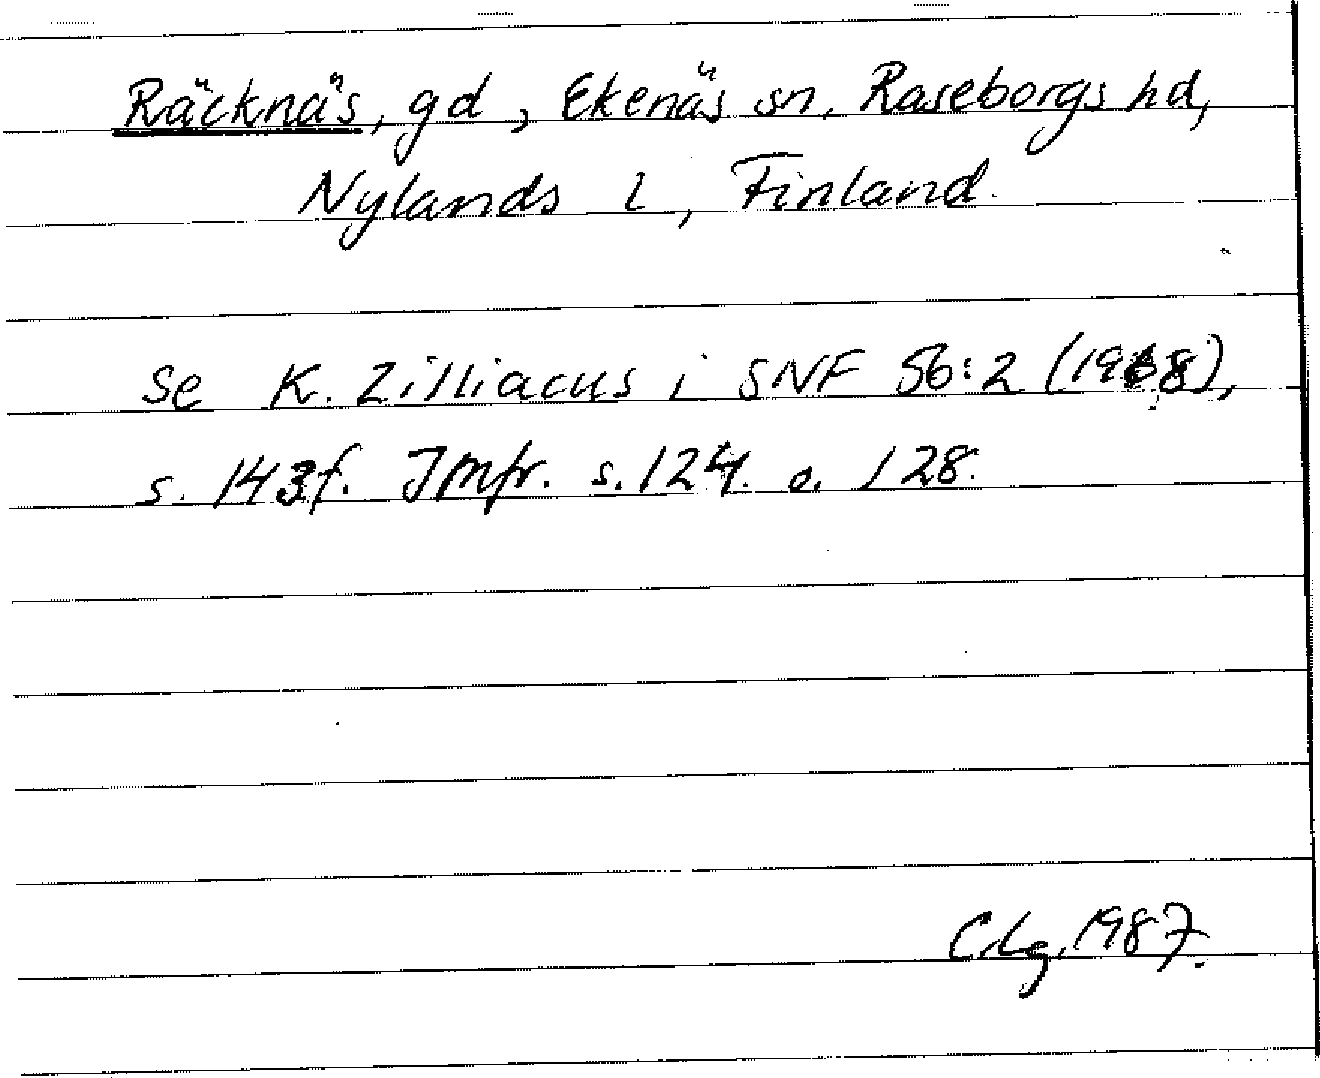 Räcknäs, gd, Ekenäs sn, Raseborgs hd,
Nylands l, Finland.
se K. Zilliacus i SNF 56:2 (1968),
s. 143f. Jmfr. s. 124. o. 128.
1987.